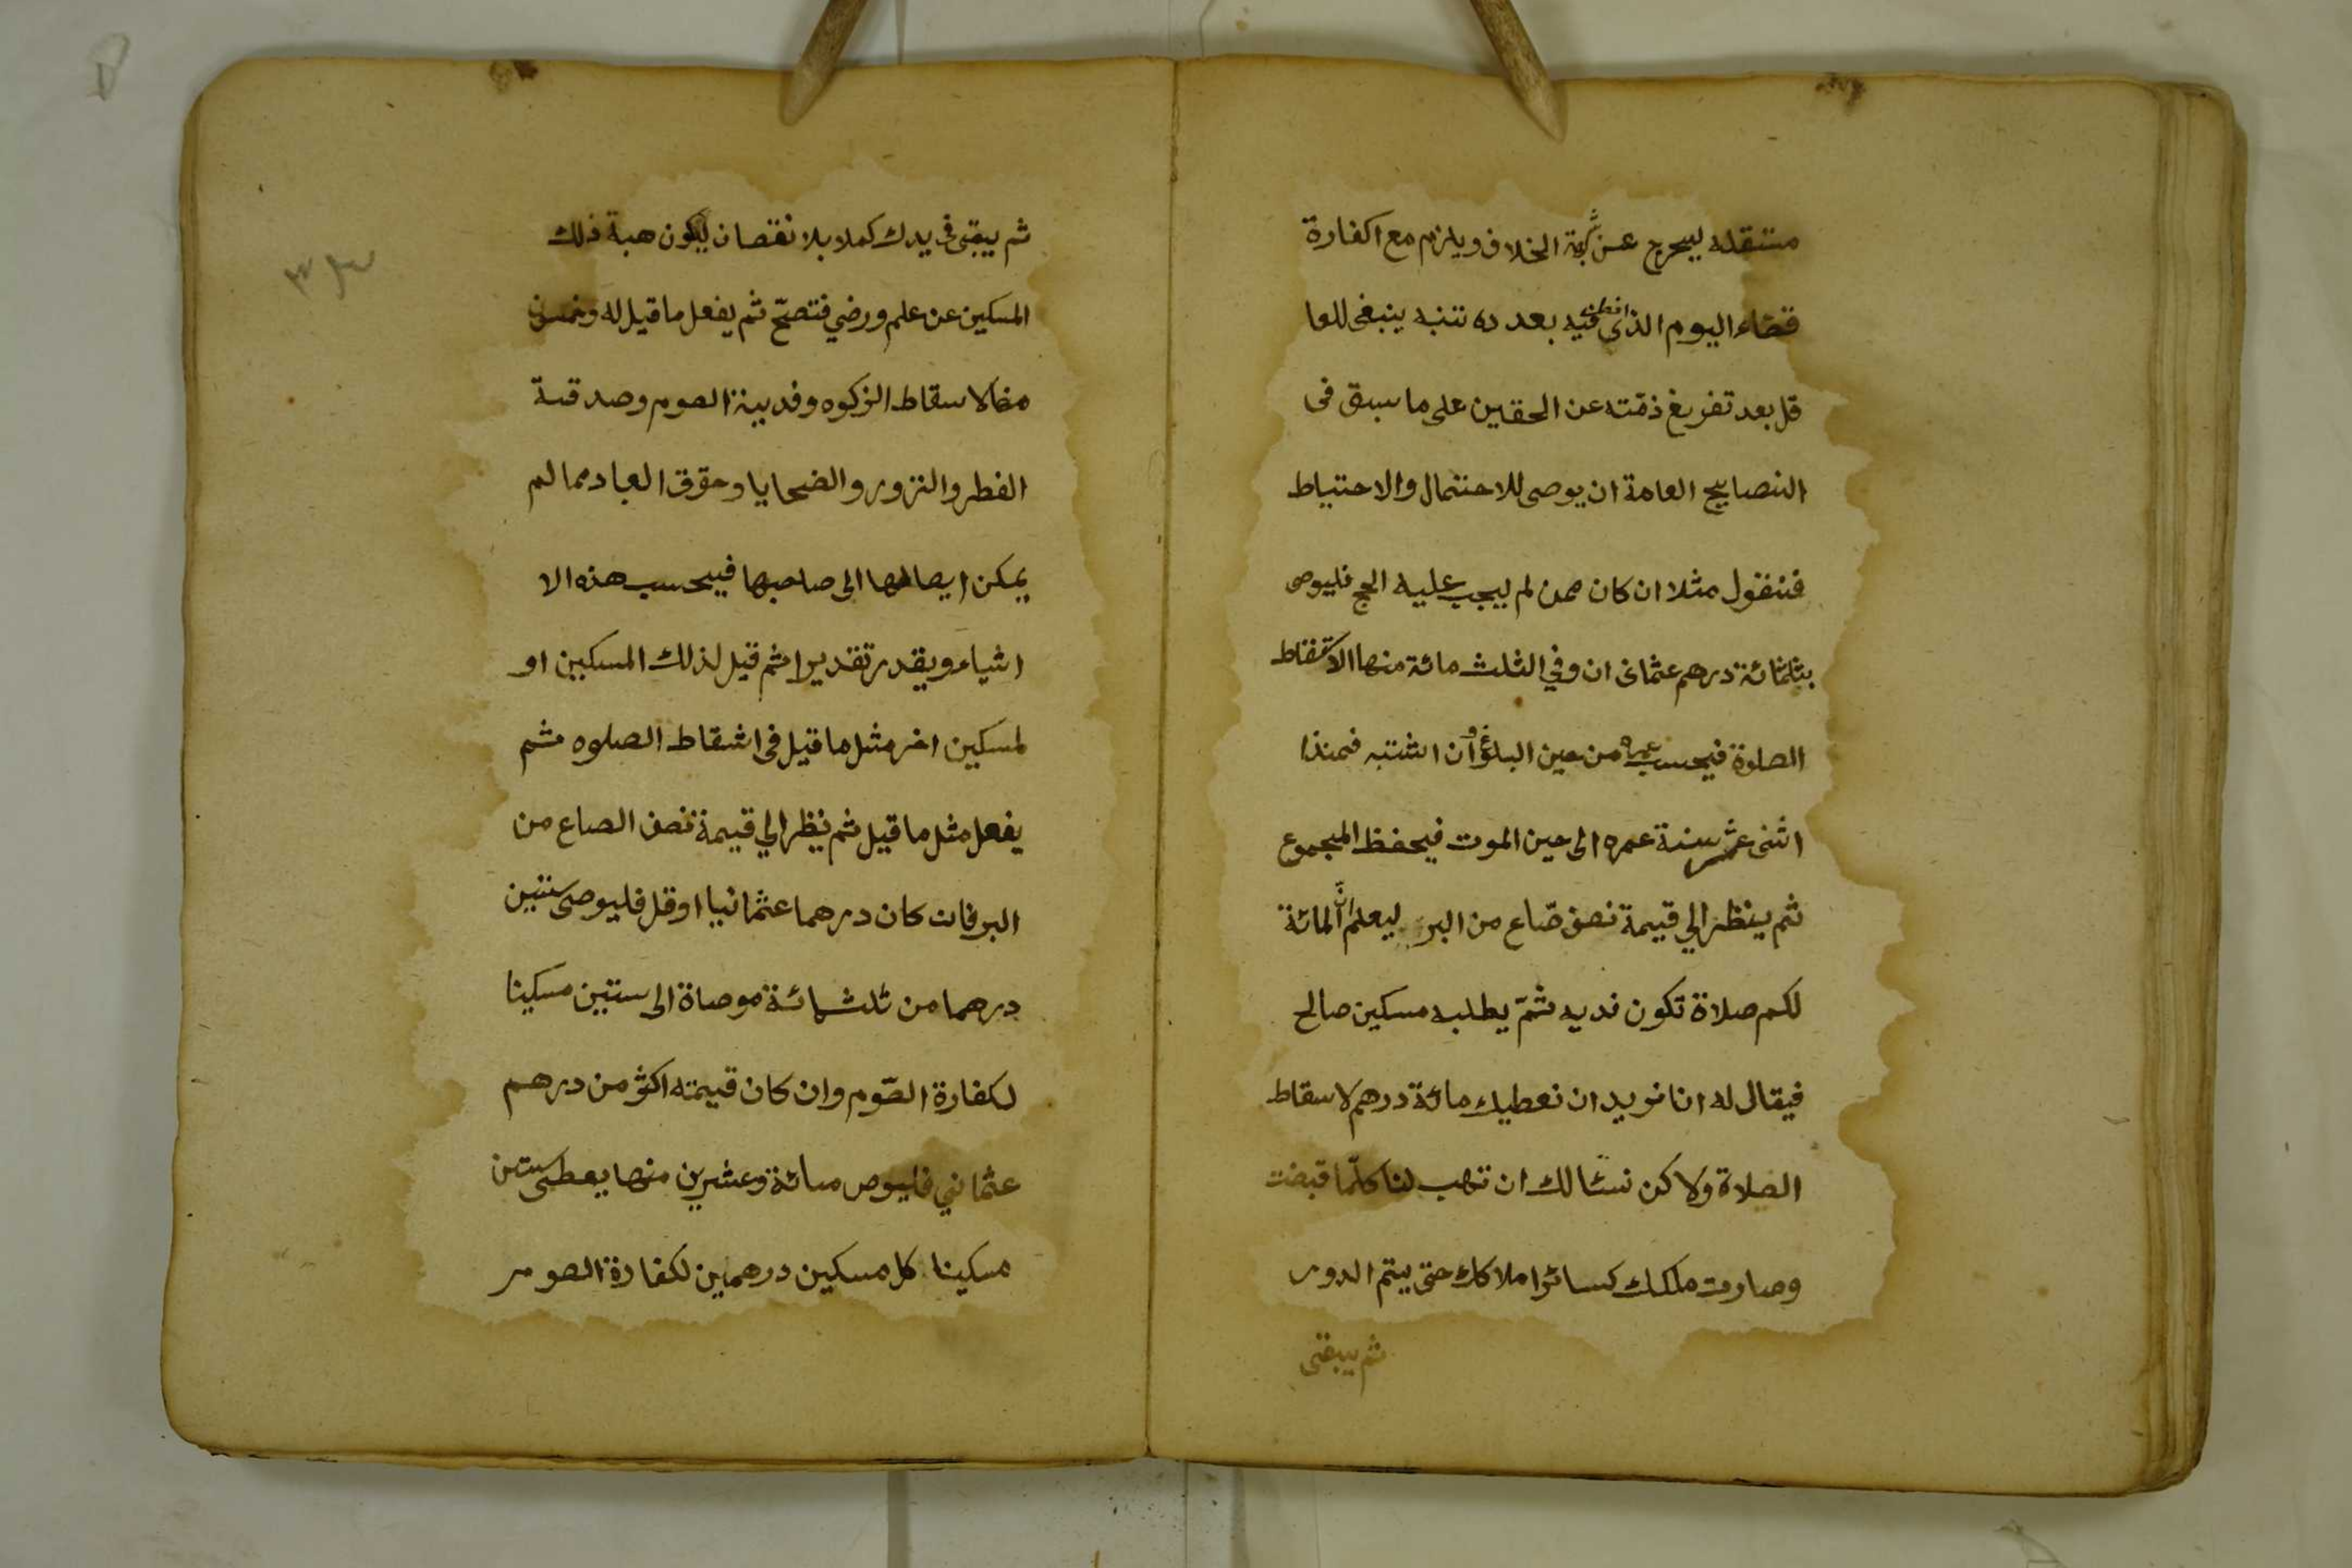 مستقله ليخرج عن شبهة الخلاف ويلزم مع اكفارة
قضاء اليوم الذى افطر فيه بعد ده تنبه ينبغى للعا
قل بعد تفريغ ذمته عن الحقين على ما سبق فى
النصايح العامة ان يوصى للاحتمال والاحتياط
فنقول مثلا ان كان ممن لم يجب عليه الحج فليوص
بثلثمائة درهم عثمانى ان وفي الثلث مائة منها الاسقاط
الصلوة فيحسب عمره من حين البلوغ وان اشتبه فمنذا
اثنى عشر سنة عمره الى حين الموت فيحفظ المجموع
ثم ينظر الي قيمة نصف صّاع من البر ليعلم انّ المائة
لكم صلاة تكون فديه ثمّ يطلبه مسكين صالح
فيقال له انا نويد ان نعطيك مائة درهم لاسقاط
الصلاة ولاكن نسئالك ان تهب لنا كلّما قبضت
وصارت ملكك كسائر املاكك حتى يتم الدور
ثم يبقى
ثم يبقى فى يدك كملا بلا نقصان ليكون هبة ذلك
المسكين عن علم ورضي فتصحّ ثم يفعل ما قيل له وخمسون
منها لاسقاط الزكوه وفدية الصوم وصدقة
الفطر والنزور والضحايا وحقوق العباد مما لم
يمكن ايصالها الى صاحبها فيحسب هذه الا
اشياء ويقدر تقديرا ثم قيل لذلك المسكين او
لمسكين اخر مثل ما قيل فى اشقاط الصلوه ثم
يفعل مثل ما قيل ثم ينظر الي قيمة نصف الصاع من
البر فان كان درهما عثمانيا او قل فليوصى ستين
درهما من ثلثمائة موصاة الى ستين مسكينا
لكفارة الصّوم وان كان قيمته اكثر من درهم
عثماني فليوص مائة وعشرين منها يعطى ستين
مسكينا كل مسكين درهمين لكفارة الصوم